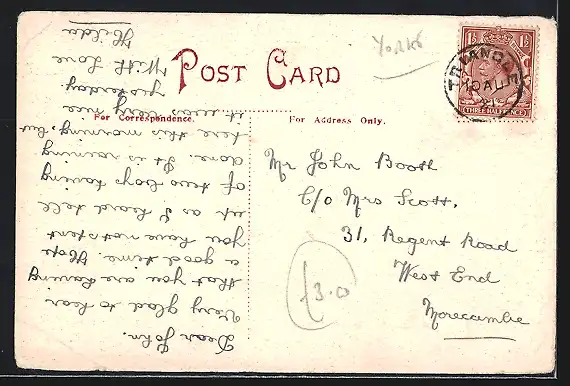 Yorks
POST CARD
For Correspondence.
For Address Only.
THREE HALFPENCE
10 AU
Mr John Booth
C/o Mrs Scott,
31, Regent Road
West End
Morecambe
£3.0
Dear John.
Very glad to hear
that you are having
a good time. Hope
you have not spent
up as I heard tell
of two boys having
done. It is raining
here this morning, but
it was very nice
yesterday
With Love
Hilda